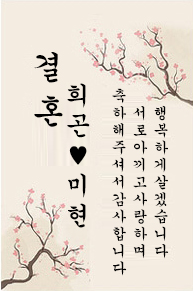 결혼
희곤♥미현
축하해주셔서감사합니다
서로아끼고사랑하며
행복하게살겠습니다